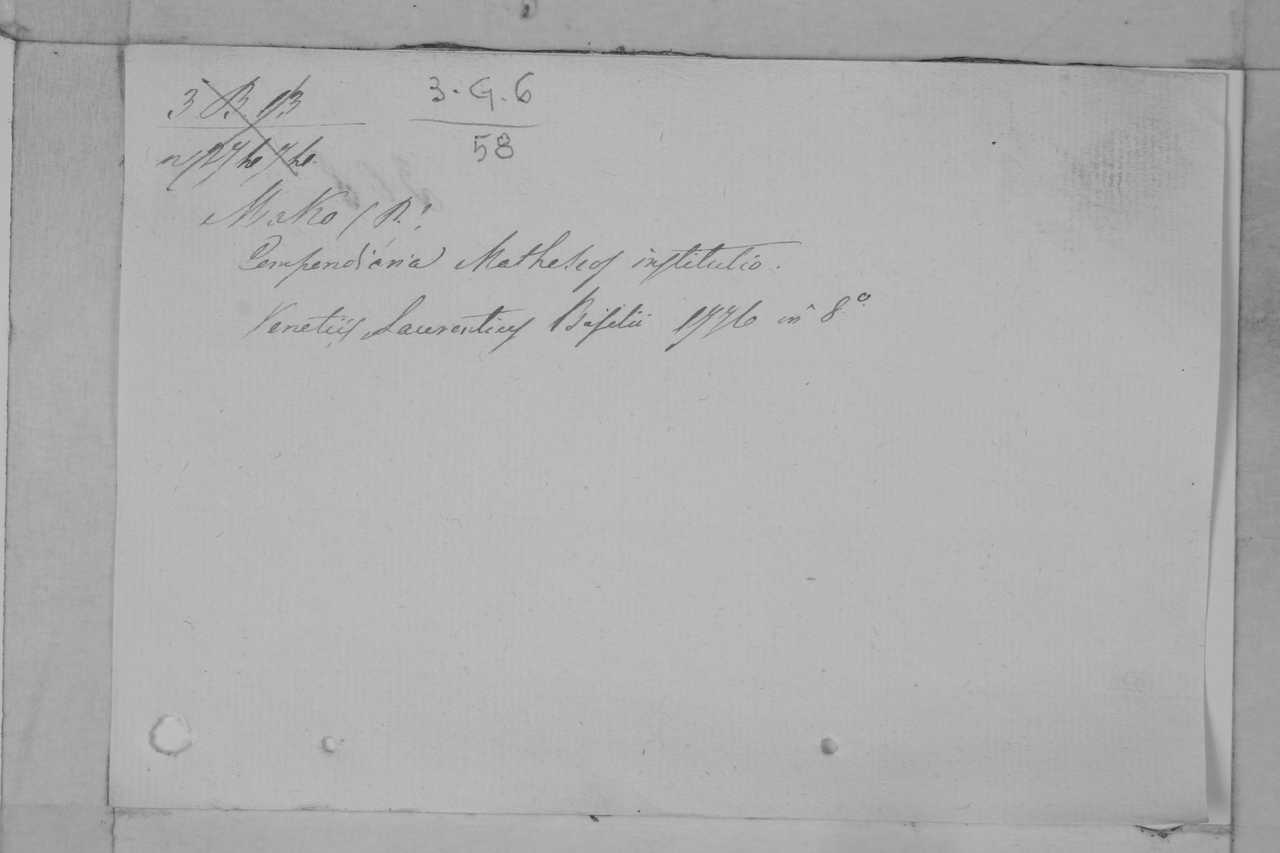 3 B 13
3. G. 6
58
Mako (P.)
Compendiaria Matheseos institutio.
Venetiis Laurentius Basilii 1776 in 8°